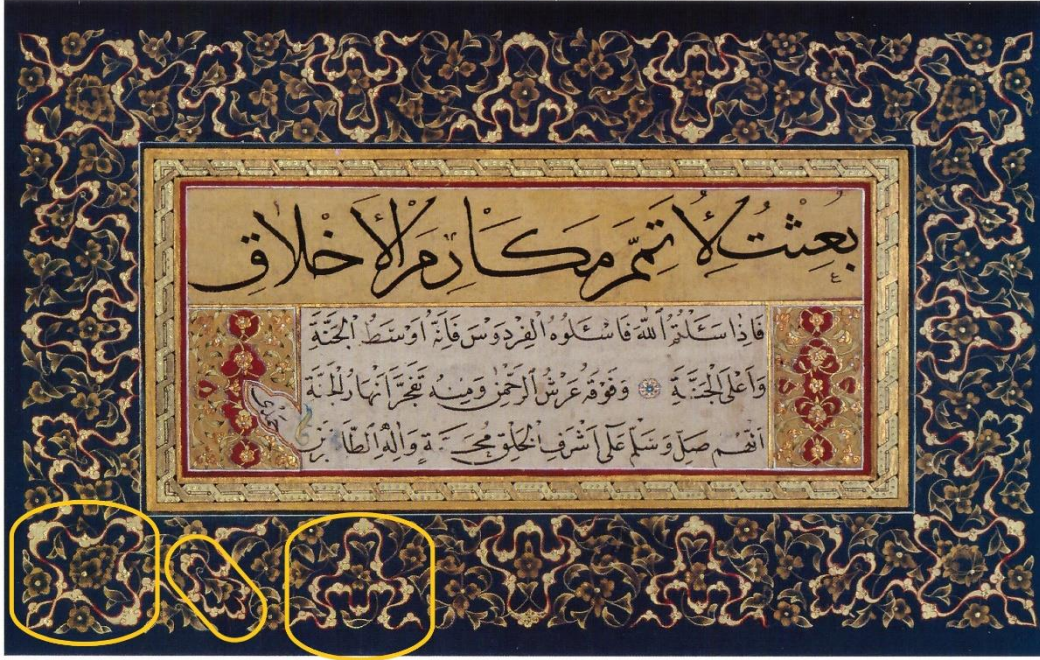 بُعِثْتُ لِأُتَمِّمَ مَكَارِمَ الْأَخْلَاقِ
فَاِذَا سَئَلْتُمُ اللّٰهَ فَاسْئَلُوهُ الْفِرْدَوْسَ فَاِنَّهُ اَوْسَطُ الْجَنَّةِ
وَاَعْلَى الْجَنَّةِ وَفَوْقَهُ عَرْشُ الرَّحْمٰنِ وَمِنْهُ تَفَجَّرُ اَنْهَارُ الْجَنَّةِ
اَللّٰهُمَّ صَلِّ وَسَلِّمْ عَلَى اَشْرَفِ الْخَلْقِ مُحَمَّدٍ وَاٰلِهِ الطَّاهِرِينَ